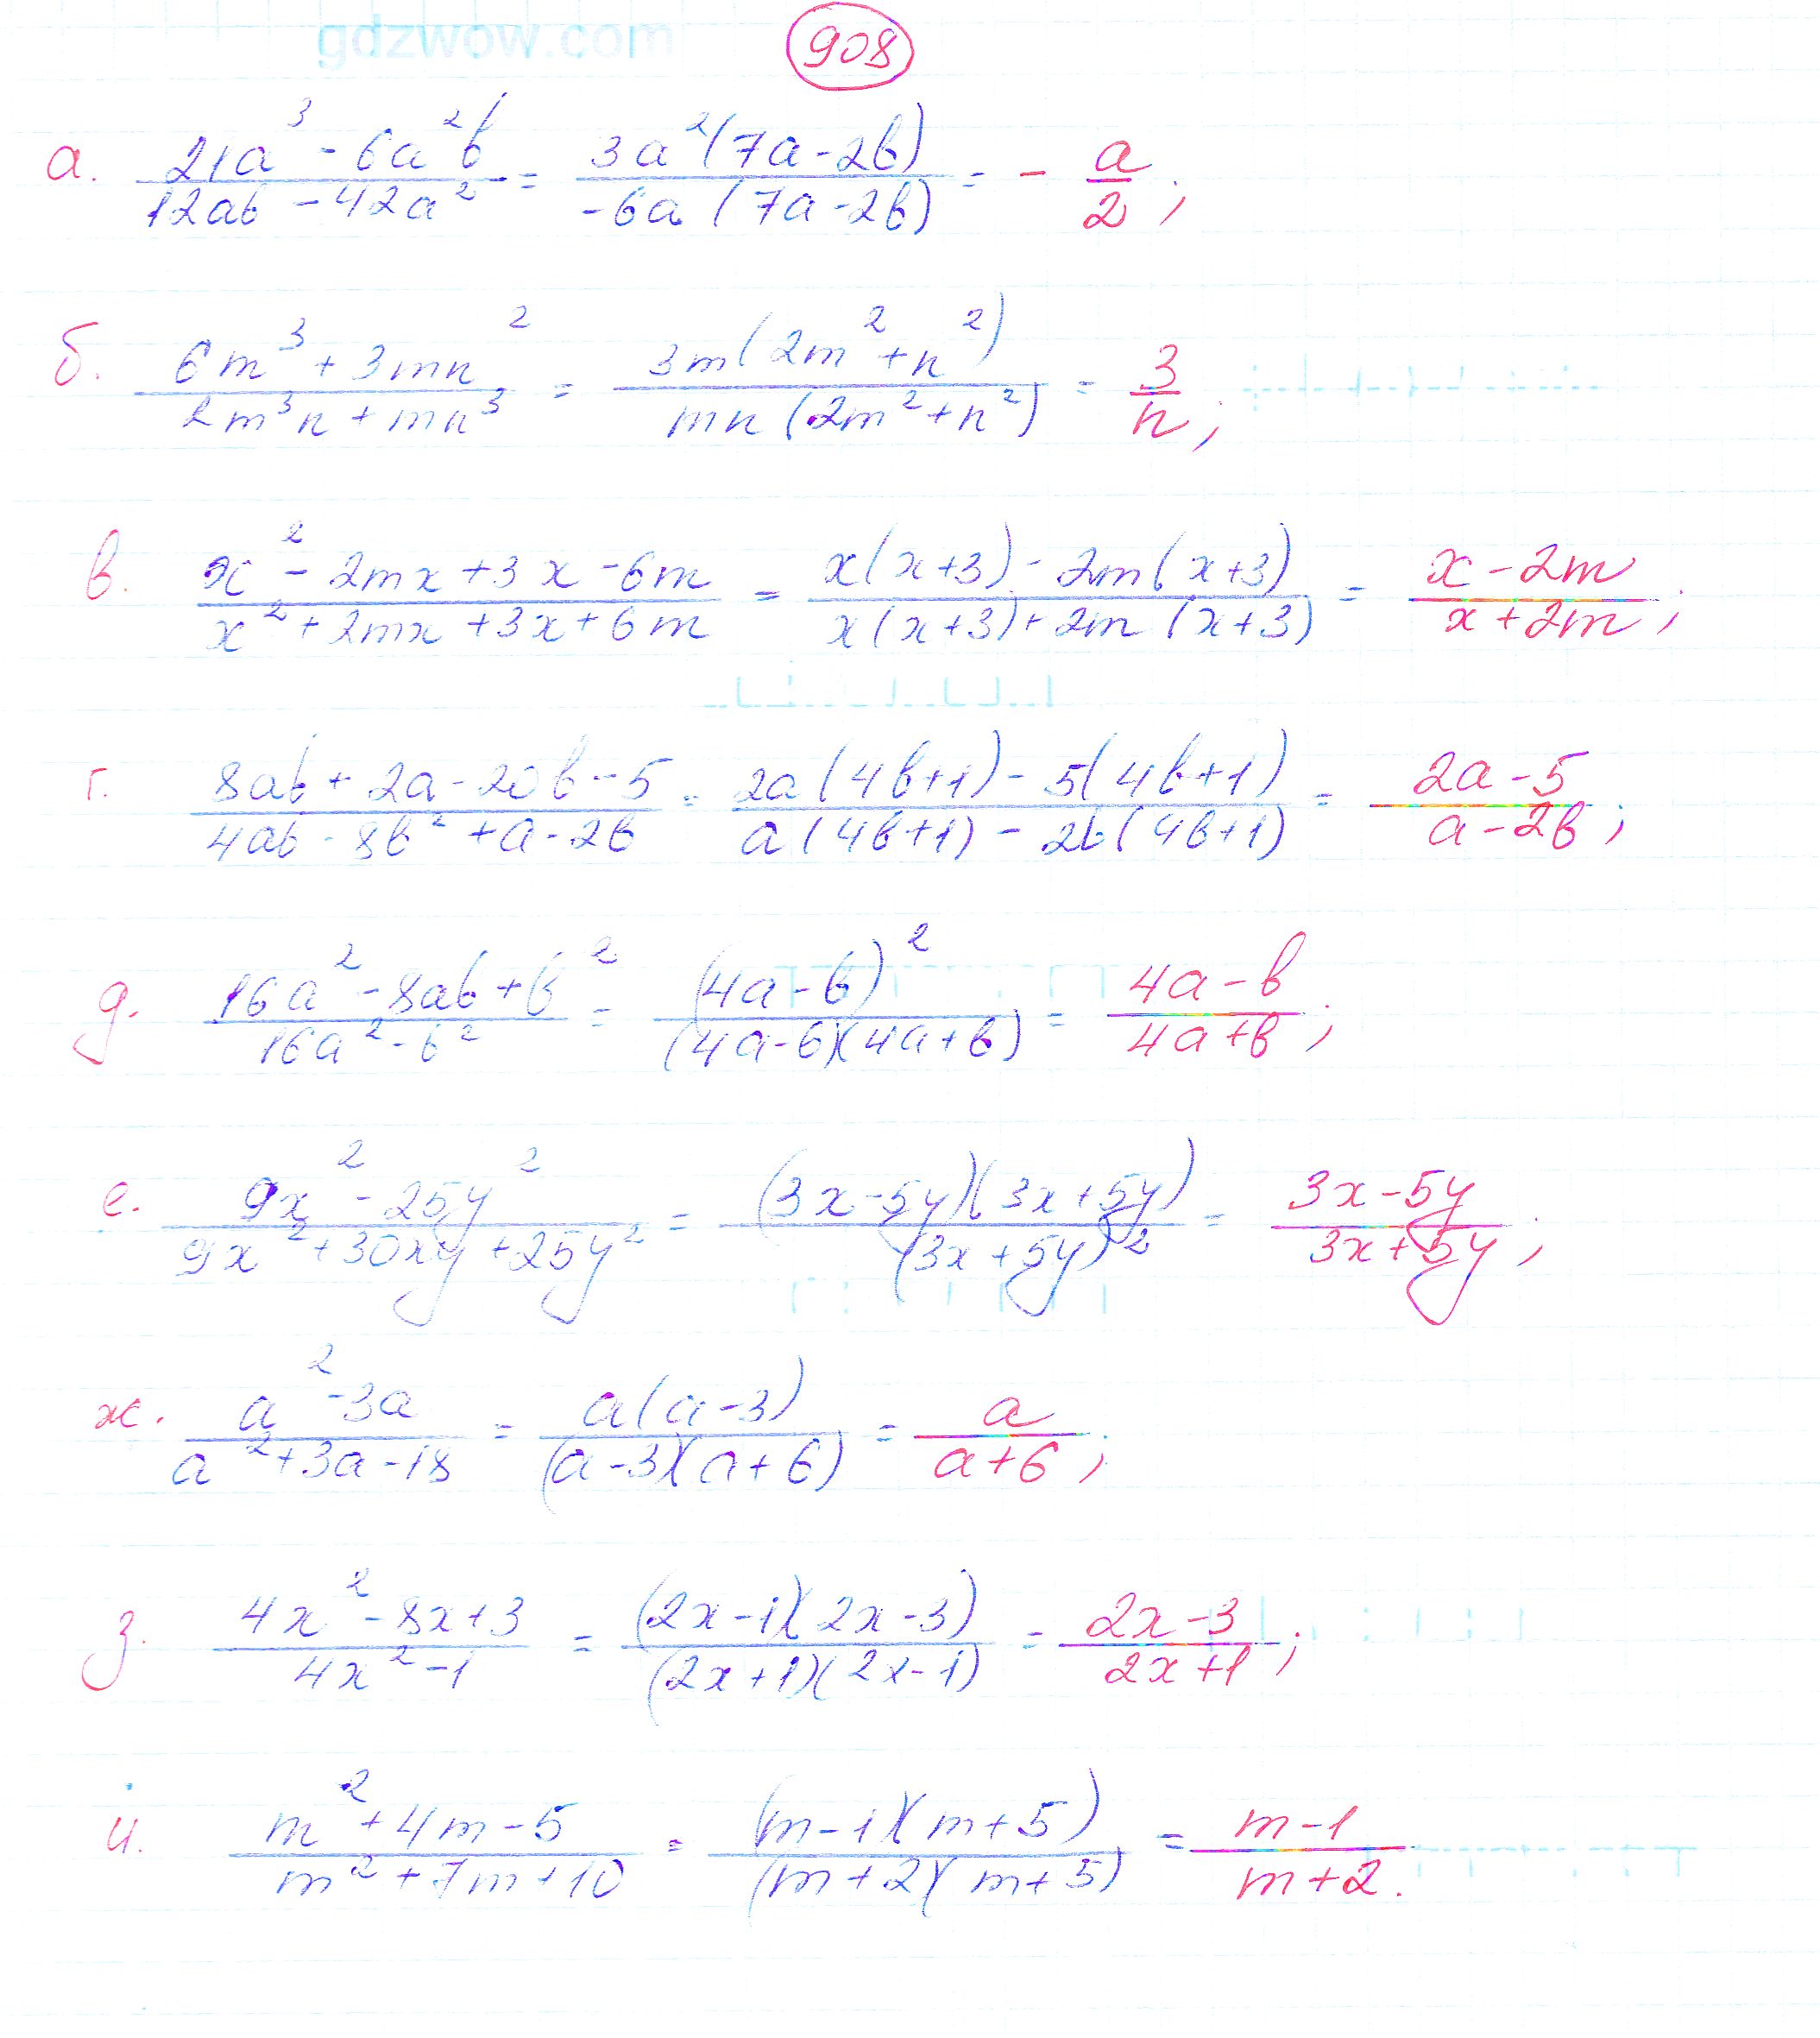 gdzwow.com
908
а. (21a³ - 6a²b)/(12ab - 42a²) = (3a²(7a-2b))/(-6a(7a-2b)) = - a/2;
б. (6m³ + 3mn²)/(2m³n + mn³) = (3m(2m²+n²))/(mn(2m²+n²)) = 3/n;
в. (x² - 2mx + 3x - 6m)/(x² + 2mx + 3x + 6m) = (x(x+3) - 2m(x+3))/(x(x+3) + 2m(x+3)) = (x-2m)/(x+2m);
г. (8ab + 2a - 20b - 5)/(4ab - 8b² + a - 2b) = (2a(4b+1) - 5(4b+1))/(a(4b+1) - 2b(4b+1)) = (2a-5)/(a-2b);
д. (16a² - 8ab + b²)/(16a² - b²) = (4a-b)²/((4a-b)(4a+b)) = (4a-b)/(4a+b);
е. (9x² - 25y²)/(9x² + 30xy + 25y²) = ((3x-5y)(3x+5y))/(3x+5y)² = (3x-5y)/(3x+5y);
ж. (a² - 3a)/(a² + 3a - 18) = (a(a-3))/((a-3)(a+6)) = a/(a+6);
з. (4x² - 8x + 3)/(4x² - 1) = ((2x-1)(2x-3))/((2x+1)(2x-1)) = (2x-3)/(2x+1);
и. (m² + 4m - 5)/(m² + 7m + 10) = ((m-1)(m+5))/((m+2)(m+5)) = (m-1)/(m+2).